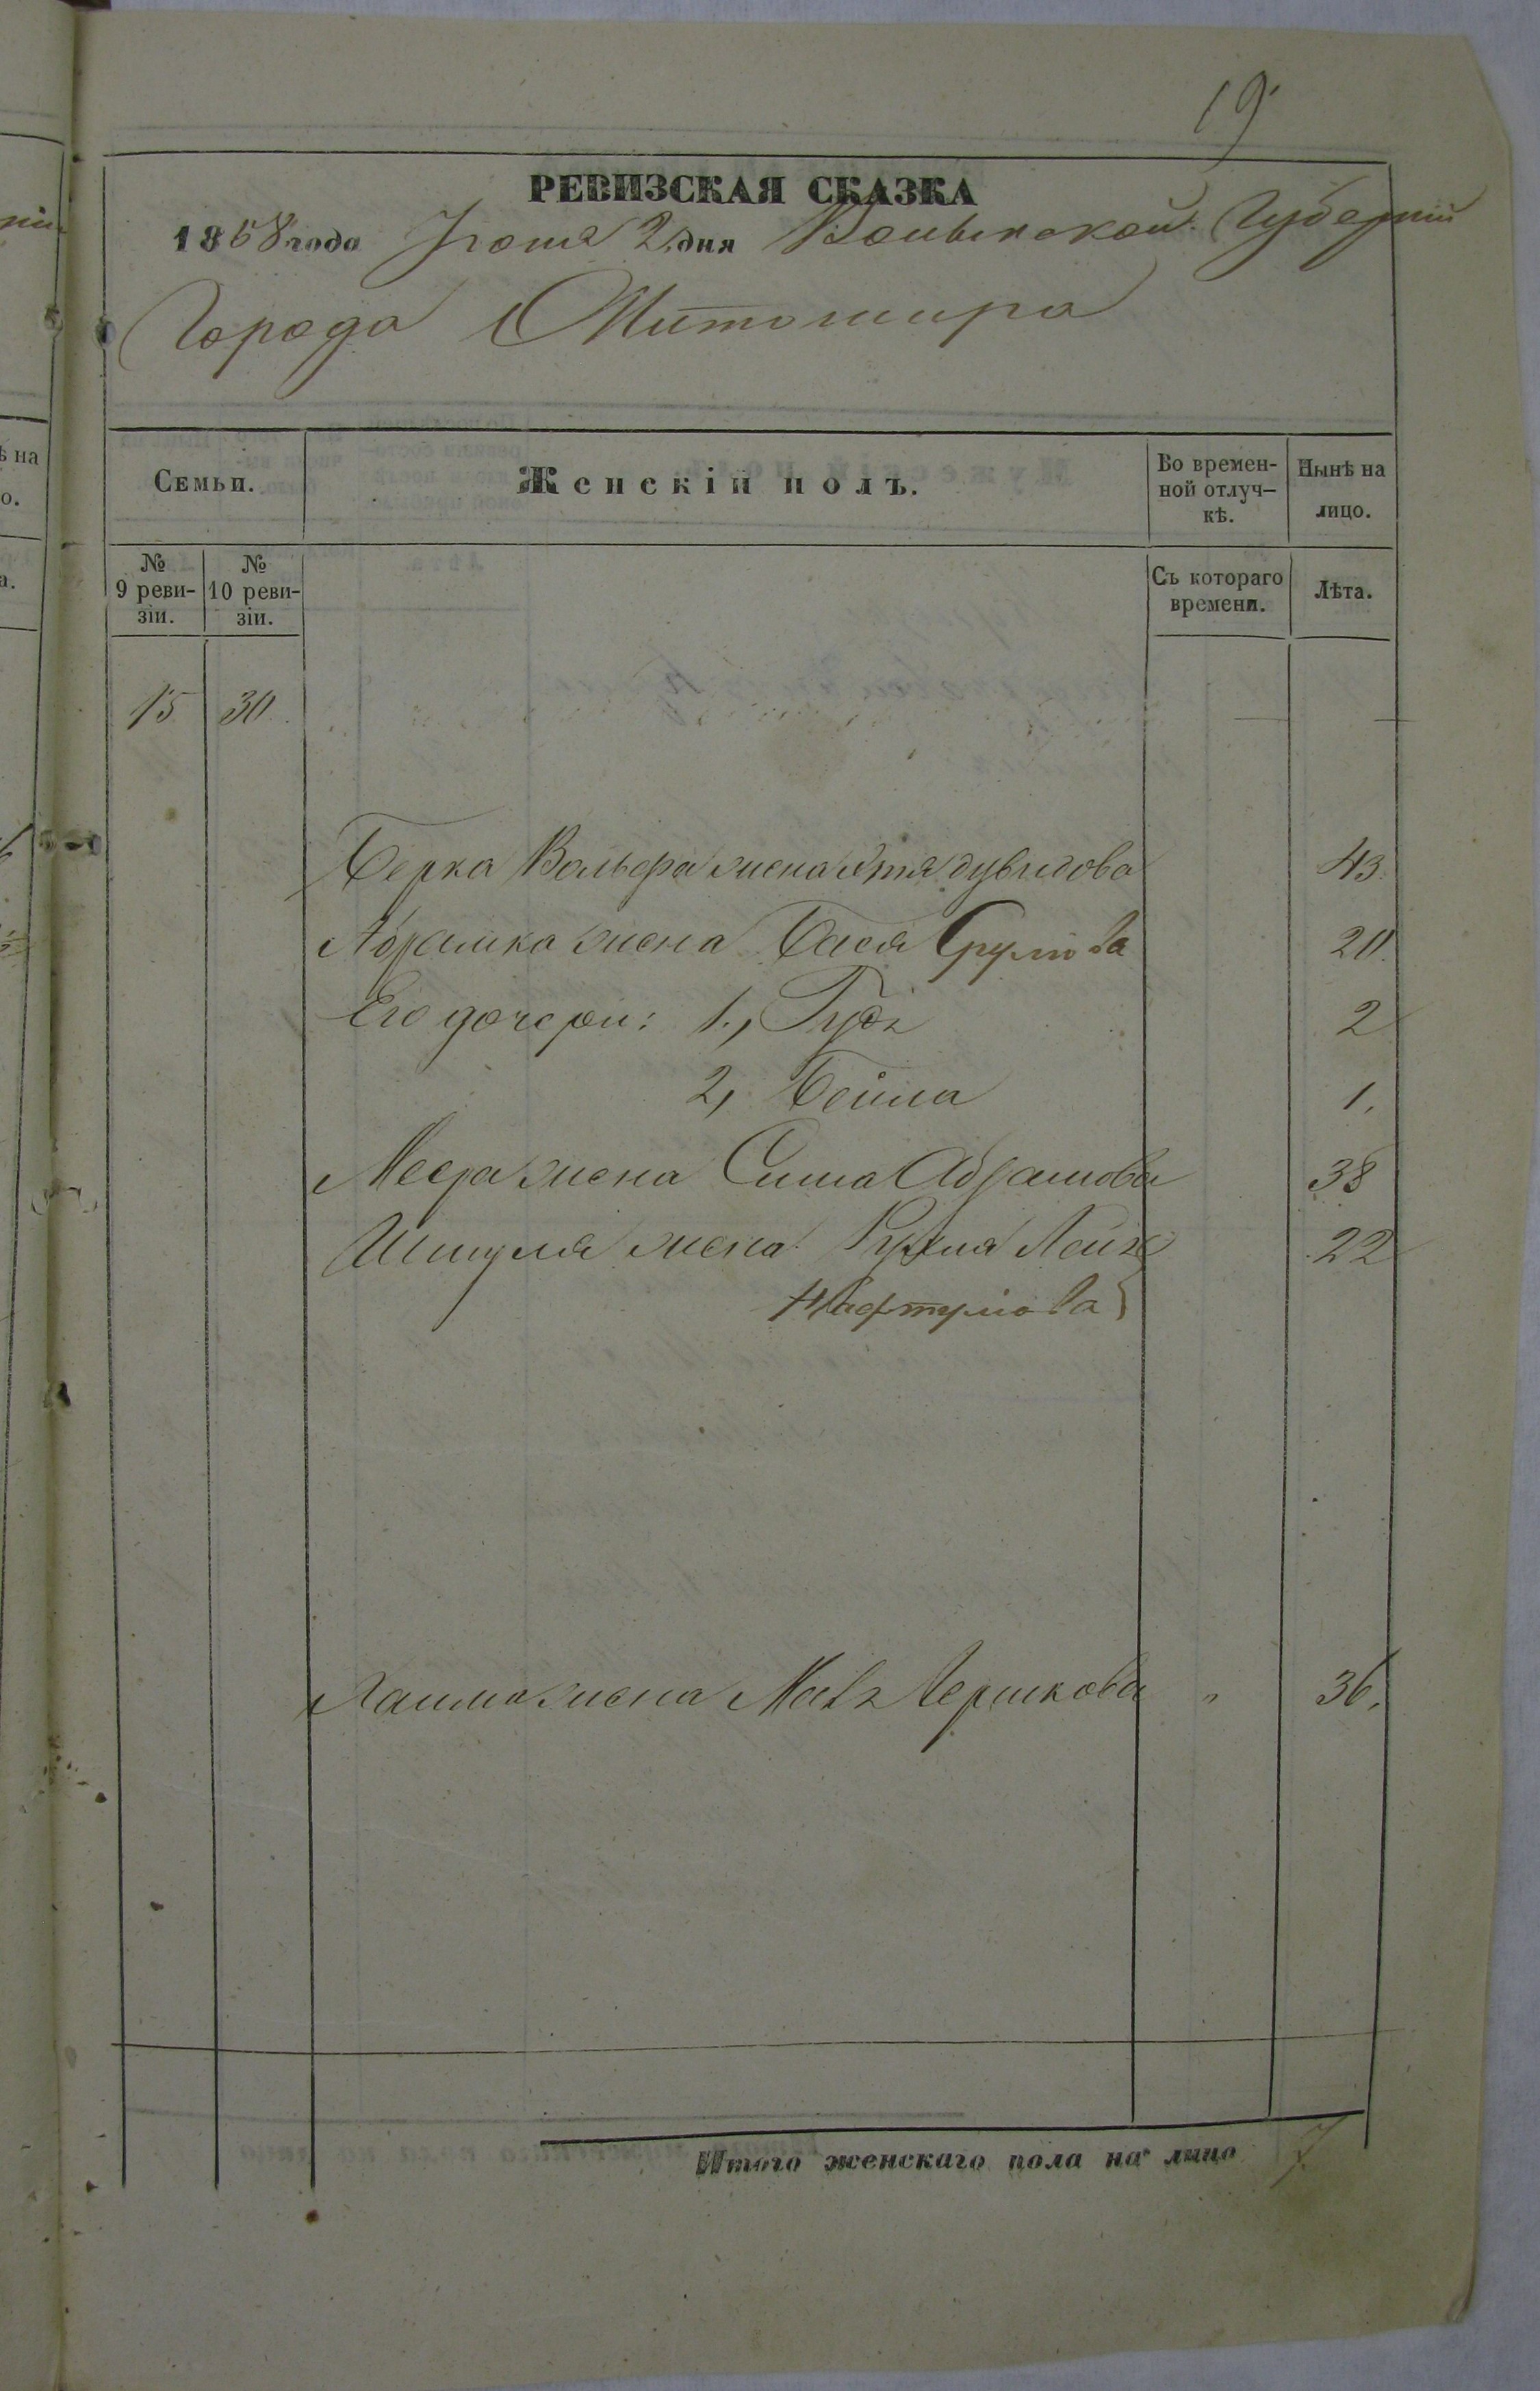 19
РЕВИЗСКАЯ СКАЗКА
1858 года Іюня 2 дня Волынской Губерніи
Города Житомира
Семьи.
Женскій полъ.
Во времен-
ной отлуч-
кѣ.
Нынѣ на
лицо.
№
9 реви-
зіи.
№
10 реви-
зіи.
Съ котораго
времени.
Лѣта.
15 30
Берка Вольфа жена Этя Дувидова 43
Абрамка жена Бася Срулова 20
Его дочери: 1., Рудя 2
2, Бейла 1.
Меера жена Сима Абрамова 38
Шмуля жена Рухля Лея 22
Нафтулова
Хаима жена Гершкова " 36.
Итого женскаго пола на лицо 7